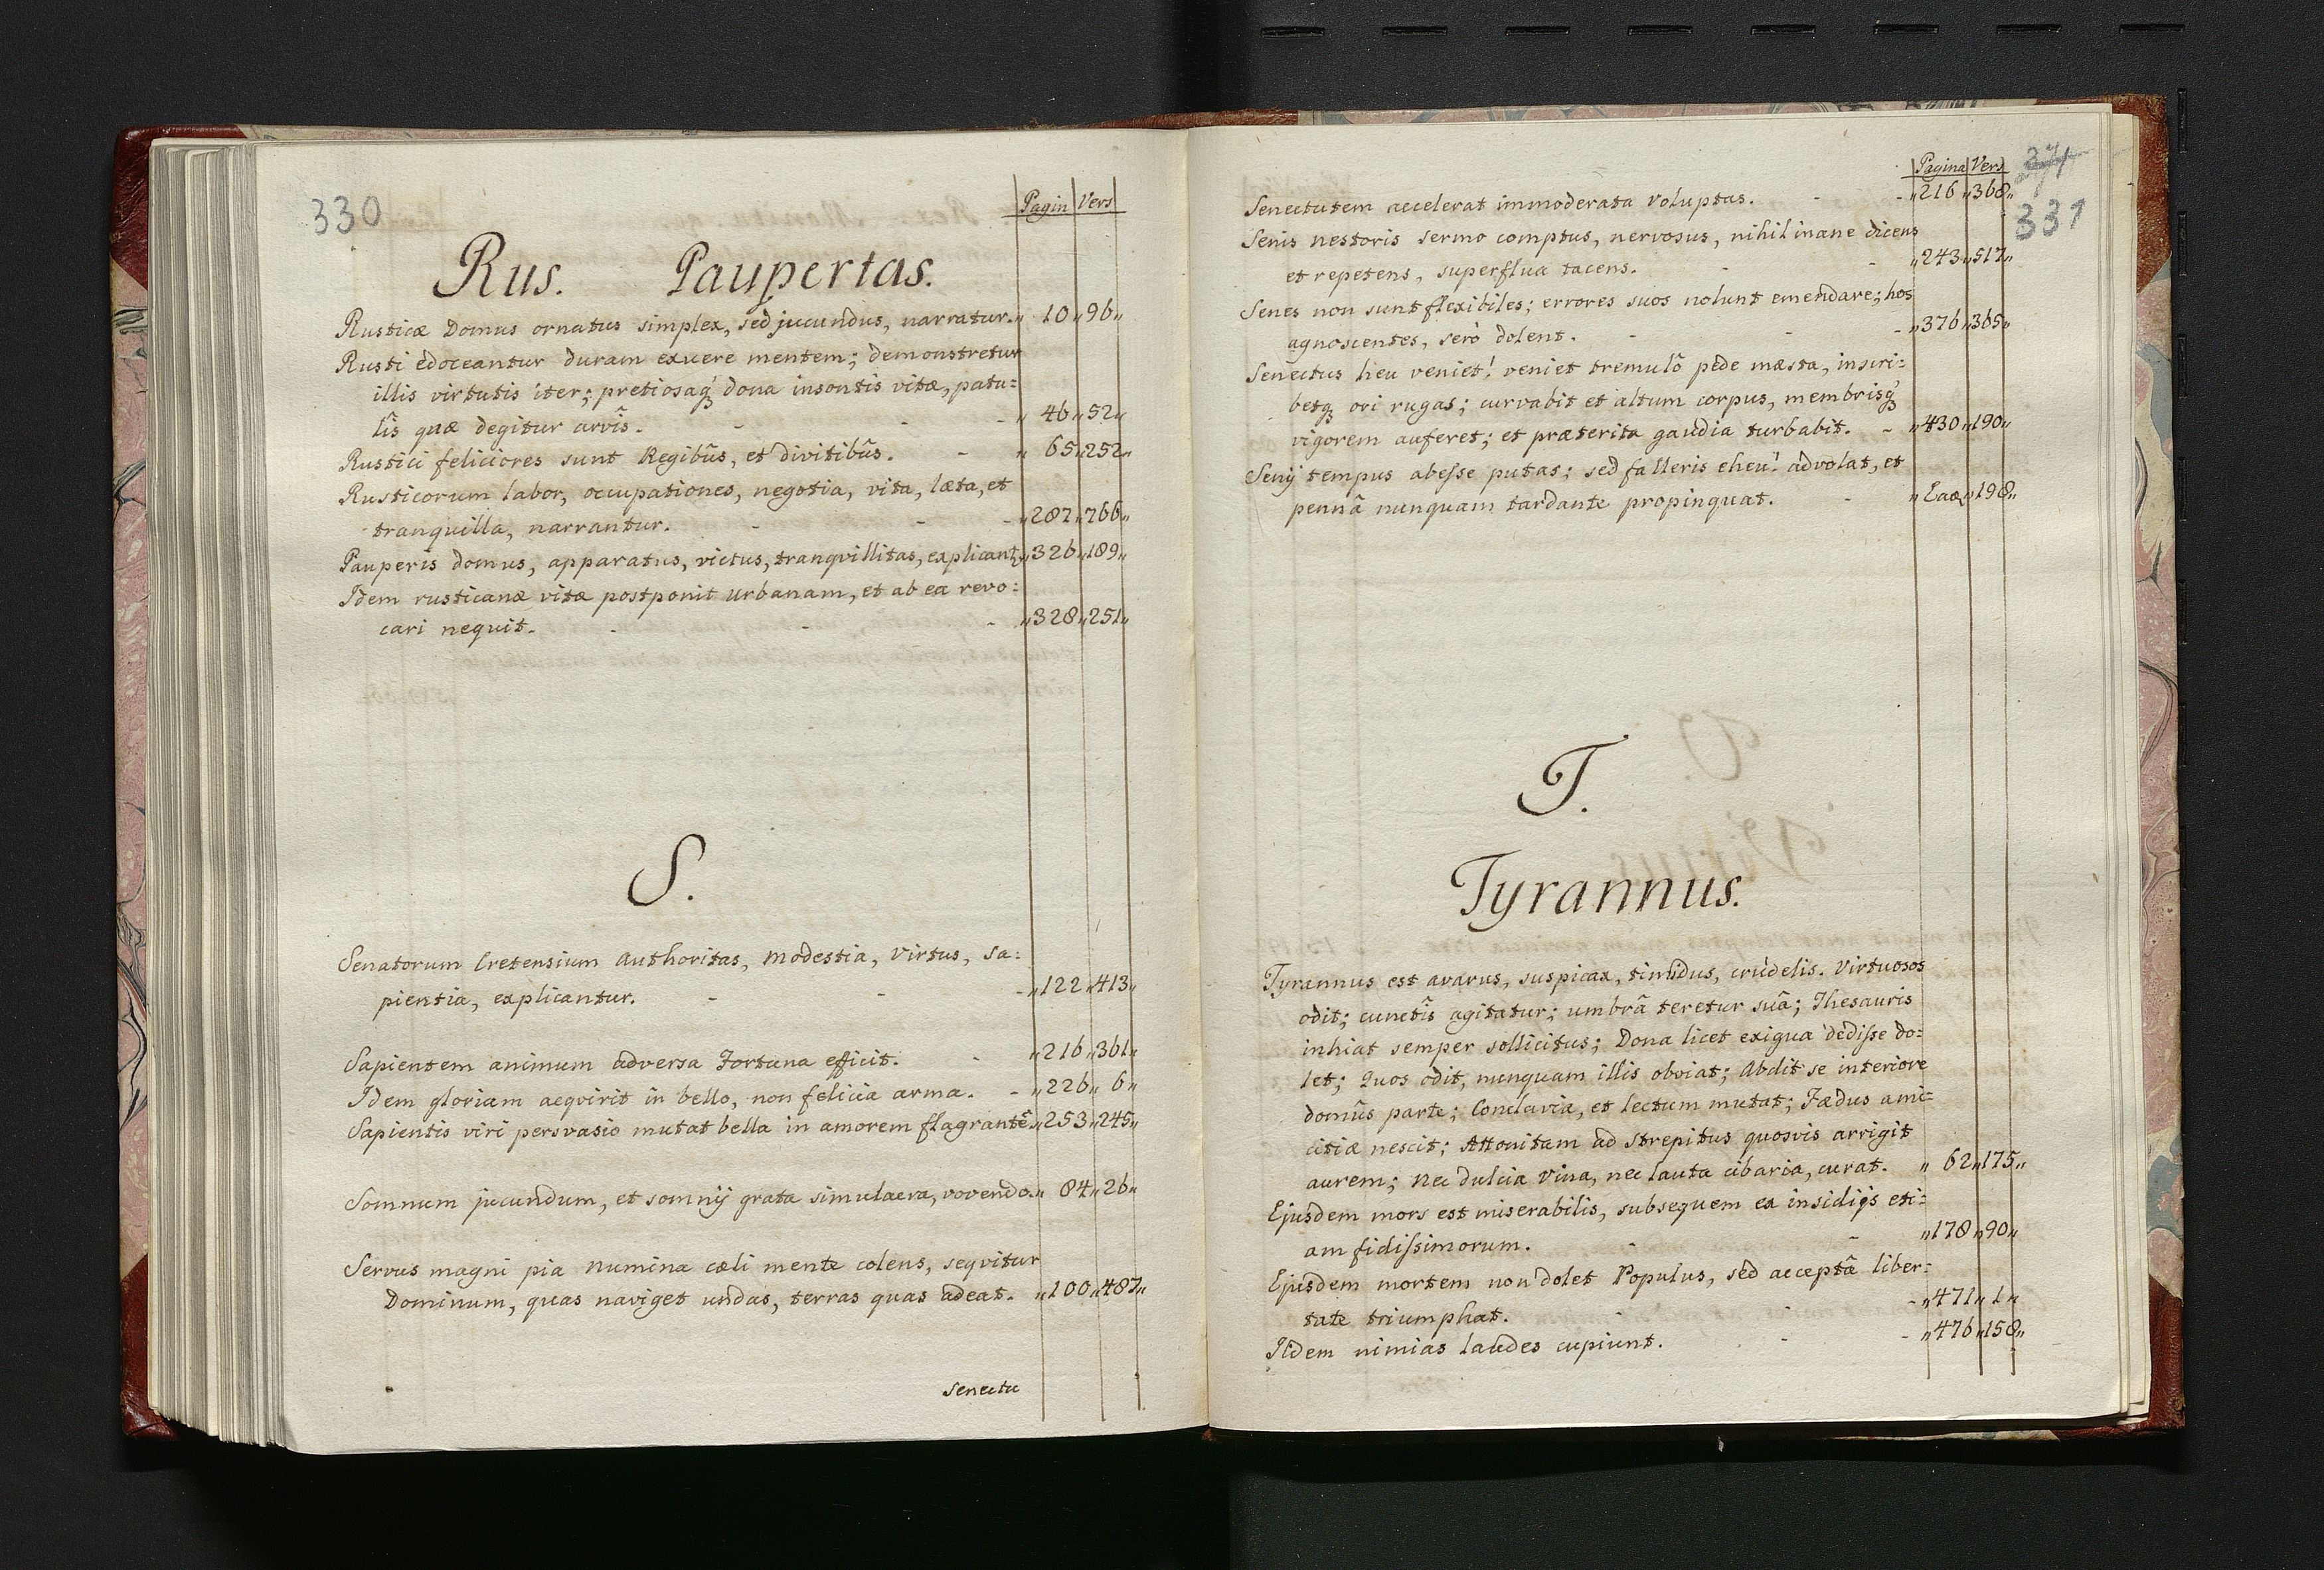 330
Pagin Vers
Rus. Paupertas.
Rusticæ Domus ornatus simplex, sed jucundus, narratur. „ 10 „ 96 „
Rusti edoceantur duram exuere mentem; demonstretur
illis virtutis iter; pretiosaq̃ dona insontis vitæ, patu:
lîs quæ degitur arvîs. - - - „ 46 „ 52 „
Rustici feliciores sunt Regibûs, et divitibûs. - „ 65 „ 252 „
Rusticorum labor, occupationes, negotia, vita, læta, et
tranquilla, narrantur. - - - „ 287 „ 766 „
Pauperis domus, apparatus, victus, tranqvillitas, explicant, „ 326 „ 189 „
Idem rusticanæ vitæ postponit urbanam, et ab ea revo:
cari nequit. - - - „ 328 „ 251 „
S.
Senatorum Cretensium Authoritas, Modestia, Virtus, sa:
pientia, explicantur. - - - „ 122 „ 413 „
Sapientem animum adversa Fortuna efficit. - „ 216 „ 361 „
Idem gloriam aeqvirit in bello, non felicia arma. - „ 226 „ 6 „
Sapientis viri persvasio mutat bella in amorem flagrantẽ. „ 253 „ 245 „
Somnum jucundum, et somnij grata simulacra, vovendo. „ 84 „ 26 „
Servus magni pia Numina cæli mente colens, seqvitur
Dominum, quas naviget undas, terras quas adeat. „ 100 „ 487 „
senectu
Pagina Vers
331
Senectutem accelerat immoderata voluptas. - - „ 216 „ 368 „
Senis nestoris sermo comptus, nervosus, nihil inane dicens
et repetens, superflua tacens. - - „ 243 „ 517 „
Senes non sunt flexibiles; errores suos nolunt emendare; hos
agnoscentes, serò dolent. - - - „ 376 „ 365 „
Senectus heu veniet! veniet tremulô pede mæsta, inscri:
betq̃ ori rugas; curvabit et altum corpus, membrisq̃
vigorem auferet; et præterita gaudia turbabit. - „ 430 „ 190 „
Senij tempus abesse putas; sed falleris eheu! advolat, et
pennâ nunquam tardante propinquat. - „ Eaq „ 198 „
T.
Tyrannus.
Tyrannus est avarus, suspicax, timidus, crudelis. Virtuosos
odit; cunctîs agitatur; umbrâ teretur suâ; Thesauris
inhiat semper sollicitus; Dona licet exigua dedisse do:
let; Quos odit, nunquam illis obviat; Abdit se interiore
domûs parte; Conclavia, et lectum mutat; Fædus ami:
citiæ nescit; Attonitam ad strepitus quosvis arrigit
aurem; Nec dulcia Vina, nec lauta cibaria, curat. „ 62 „ 175 „
Ejusdem mors est miserabilis, subsequem ex insidijs eti:
am fidissimorum. - - „ 178 „ 90 „
Ejusdem mortem non dolet Populus, sed acceptâ liber:
tate triumphat. - - - „ 471 „ 1 „
Iidem nimias laudes cupiunt. - - „ 476 „ 158 „